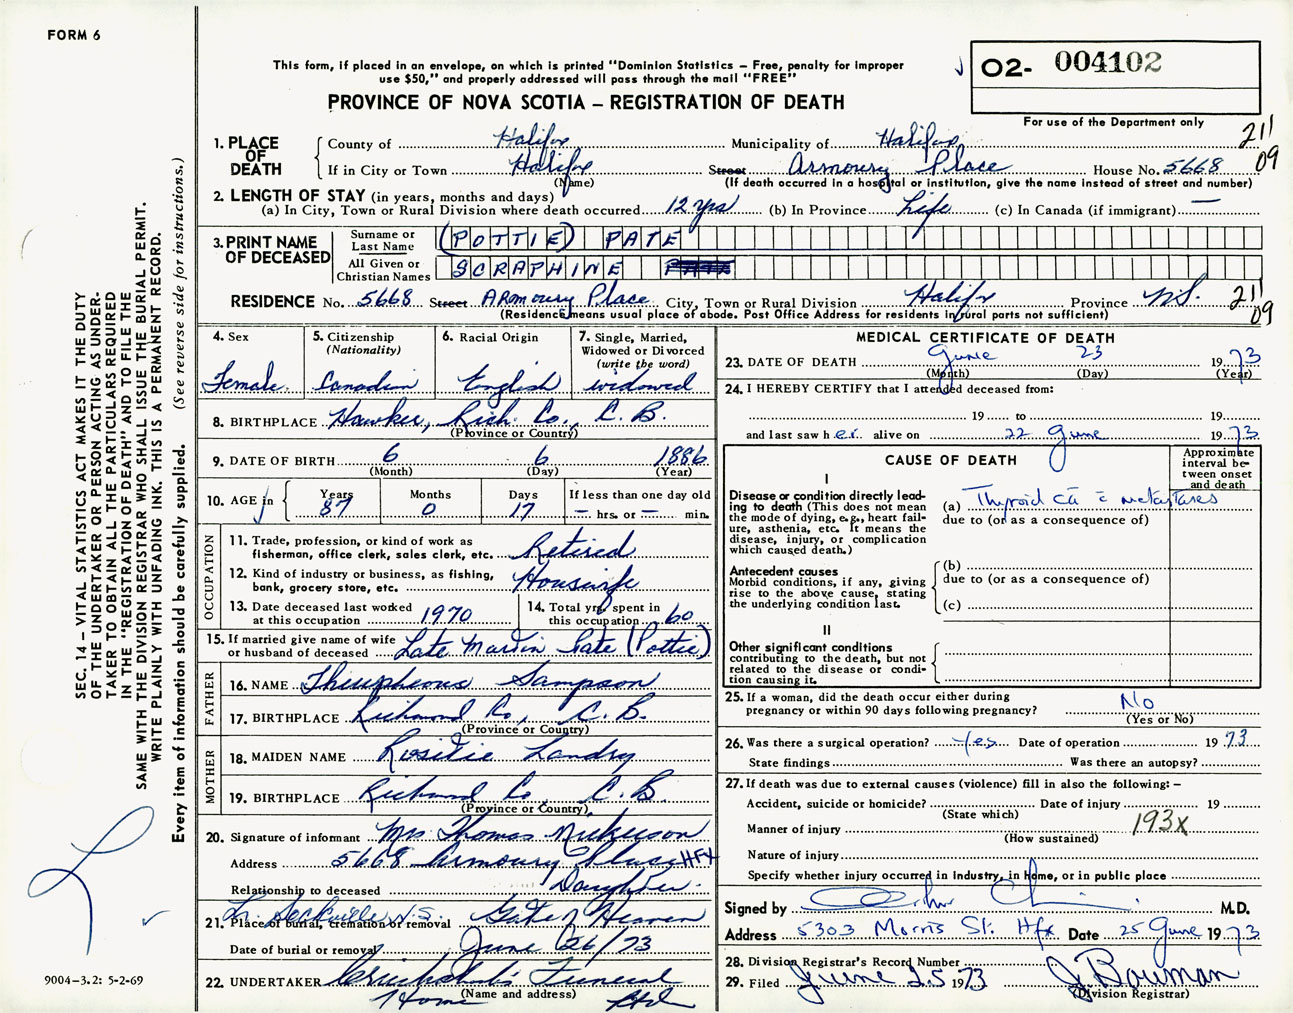 FORM 6
This form, if placed in an envelope, on which is printed "Dominion Statistics – Free, penalty for improper
use $50," and properly addressed will pass through the mail "FREE"
PROVINCE OF NOVA SCOTIA – REGISTRATION OF DEATH
O2- 004102
For use of the Department only
211
09
1. PLACE OF DEATH
County of Halifax Municipality of Halifax
If in City or Town Halifax Street Armoury Place House No. 5668
(Name) (If death occurred in a hospital or institution, give the name instead of street and number)
2. LENGTH OF STAY (in years, months and days)
(a) In City, Town or Rural Division where death occurred 12 yrs (b) In Province Life (c) In Canada (if immigrant) —
3. PRINT NAME OF DECEASED
Surname or Last Name (POTTIE) PATE
All Given or Christian Names SCRAPHINE
RESIDENCE No. 5668 Street Armoury Place City, Town or Rural Division Halifx Province N.S. 211
09
(Residence means usual place of abode. Post Office Address for residents in rural parts not sufficient)
4. Sex Female
5. Citizenship (Nationality) Canadian
6. Racial Origin English
7. Single, Married, Widowed or Divorced (write the word) widowed
8. BIRTHPLACE Hawker, Rich. Co., C. B.
(Province or Country)
9. DATE OF BIRTH 6 6 1886
(Month) (Day) (Year)
10. AGE in Years 87 Months 0 Days 17 If less than one day old — hrs. or — min.
OCCUPATION
11. Trade, profession, or kind of work as fisherman, office clerk, sales clerk, etc. Retired
12. Kind of industry or business, as fishing, bank, grocery store, etc. Housewife
13. Date deceased last worked at this occupation 1970
14. Total yrs. spent in this occupation 60
15. If married give name of wife or husband of deceased Late Martin Pate (Pottie)
FATHER
16. NAME Sampson
17. BIRTHPLACE Richmond Co., C. B.
(Province or Country)
MOTHER
18. MAIDEN NAME Landry
19. BIRTHPLACE Richmond Co. C. B.
(Province or Country)
20. Signature of informant Mrs Thomas Nickerson
Address 5668 Armoury Place HFX
Relationship to deceased Daughter
21. Place of burial, cremation or removal Lr. Sackville N.S. Gate of Heaven
Date of burial or removal June 26/73
22. UNDERTAKER Cruikshank's Funeral
Home
(Name and address)
MEDICAL CERTIFICATE OF DEATH
23. DATE OF DEATH June 23 1973
(Month) (Day) (Year)
24. I HEREBY CERTIFY that I attended deceased from:
19 to 19
and last saw her alive on 22 June 1973
CAUSE OF DEATH
Approximate interval between onset and death
I
Disease or condition directly leading to death (This does not mean the mode of dying, e.g., heart failure, asthenia, etc. It means the disease, injury, or complication which caused death.)
(a) Thyroid ca c̄ metastases
due to (or as a consequence of)
Antecedent causes
Morbid conditions, if any, giving rise to the above cause, stating the underlying condition last.
(b)
due to (or as a consequence of)
(c)
II
Other significant conditions contributing to the death, but not related to the disease or condition causing it.
25. If a woman, did the death occur either during pregnancy or within 90 days following pregnancy? No
(Yes or No)
26. Was there a surgical operation? Yes Date of operation 1973
State findings Was there an autopsy?
27. If death was due to external causes (violence) fill in also the following: –
Accident, suicide or homicide? Date of injury 19
(State which)
Manner of injury 193X
(How sustained)
Nature of injury
Specify whether injury occurred in Industry, in Home, or in public place
Signed by M.D.
Address 5303 Morris St. Hfx Date 25 June 1973
28. Division Registrar's Record Number
29. Filed June 25 1973 J. Bowman
(Division Registrar)
SEC. 14 – VITAL STATISTICS ACT MAKES IT THE DUTY
OF THE UNDERTAKER OR PERSON ACTING AS UNDER-
TAKER TO OBTAIN ALL THE PARTICULARS REQUIRED
IN THE "REGISTRATION OF DEATH" AND TO FILE THE
SAME WITH THE DIVISION REGISTRAR WHO SHALL ISSUE THE BURIAL PERMIT.
WRITE PLAINLY WITH UNFADING INK. THIS IS A PERMANENT RECORD.
Every item of information should be carefully supplied. (See reverse side for instructions.)
9004-3.2: 5-2-69